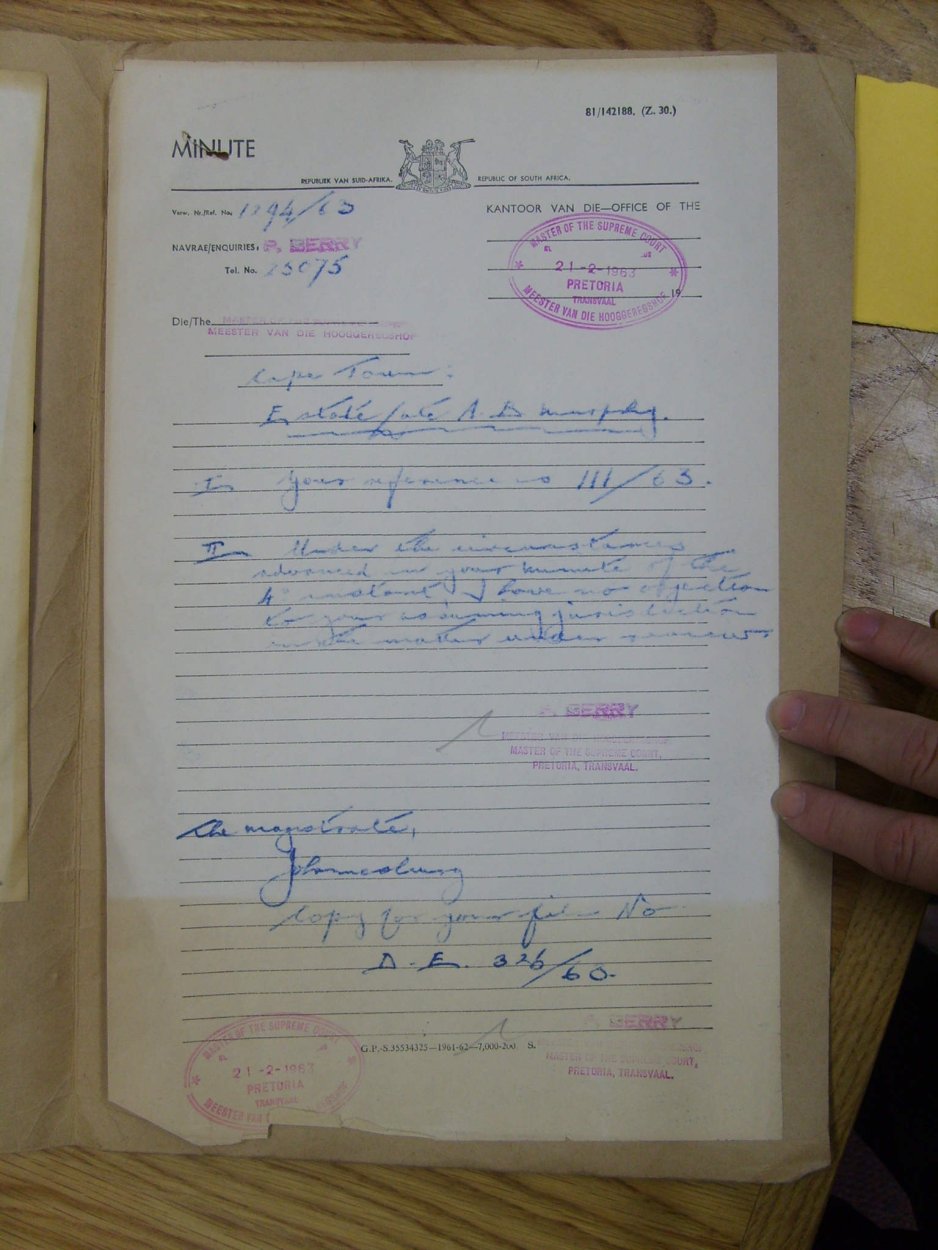 81/142188. (Z. 30.)
MINUTE
REPUBLIEK VAN SUID-AFRIKA. REPUBLIC OF SOUTH AFRICA.
Verw. Nr./Ref. No. 1294/63
KANTOOR VAN DIE—OFFICE OF THE
NAVRAE/ENQUIRIES: P. BERRY
Tel. No. 25075
MASTER OF THE SUPREME COURT
21-2-1963
PRETORIA
TRANSVAAL
MEESTER VAN DIE HOOGGEREGSHOF
19
Die/The MASTER OF THE SUPREME COURT
MEESTER VAN DIE HOOGGEREGSHOF
Cape Town:
Estate late A. B Murphy.
I Your reference no 111/63.
II Under the circumstances
advanced in your minute of the
4th instant I have no objection
to your assuming jurisdiction
in the matter under
P. BERRY
MEESTER VAN DIE HOOGGEREGSHOF
MASTER OF THE SUPREME COURT,
PRETORIA, TRANSVAAL.
The magistrate,
Johannesburg
Copy for your file No
D. E. 326/63.
P. BERRY
G.P.-S.35534325—1961-62—7,000-200. S.
MASTER OF THE SUPREME COURT,
PRETORIA, TRANSVAAL.
MASTER OF THE SUPREME COURT
21-2-1963
PRETORIA
TRANSVAAL
MEESTER VAN